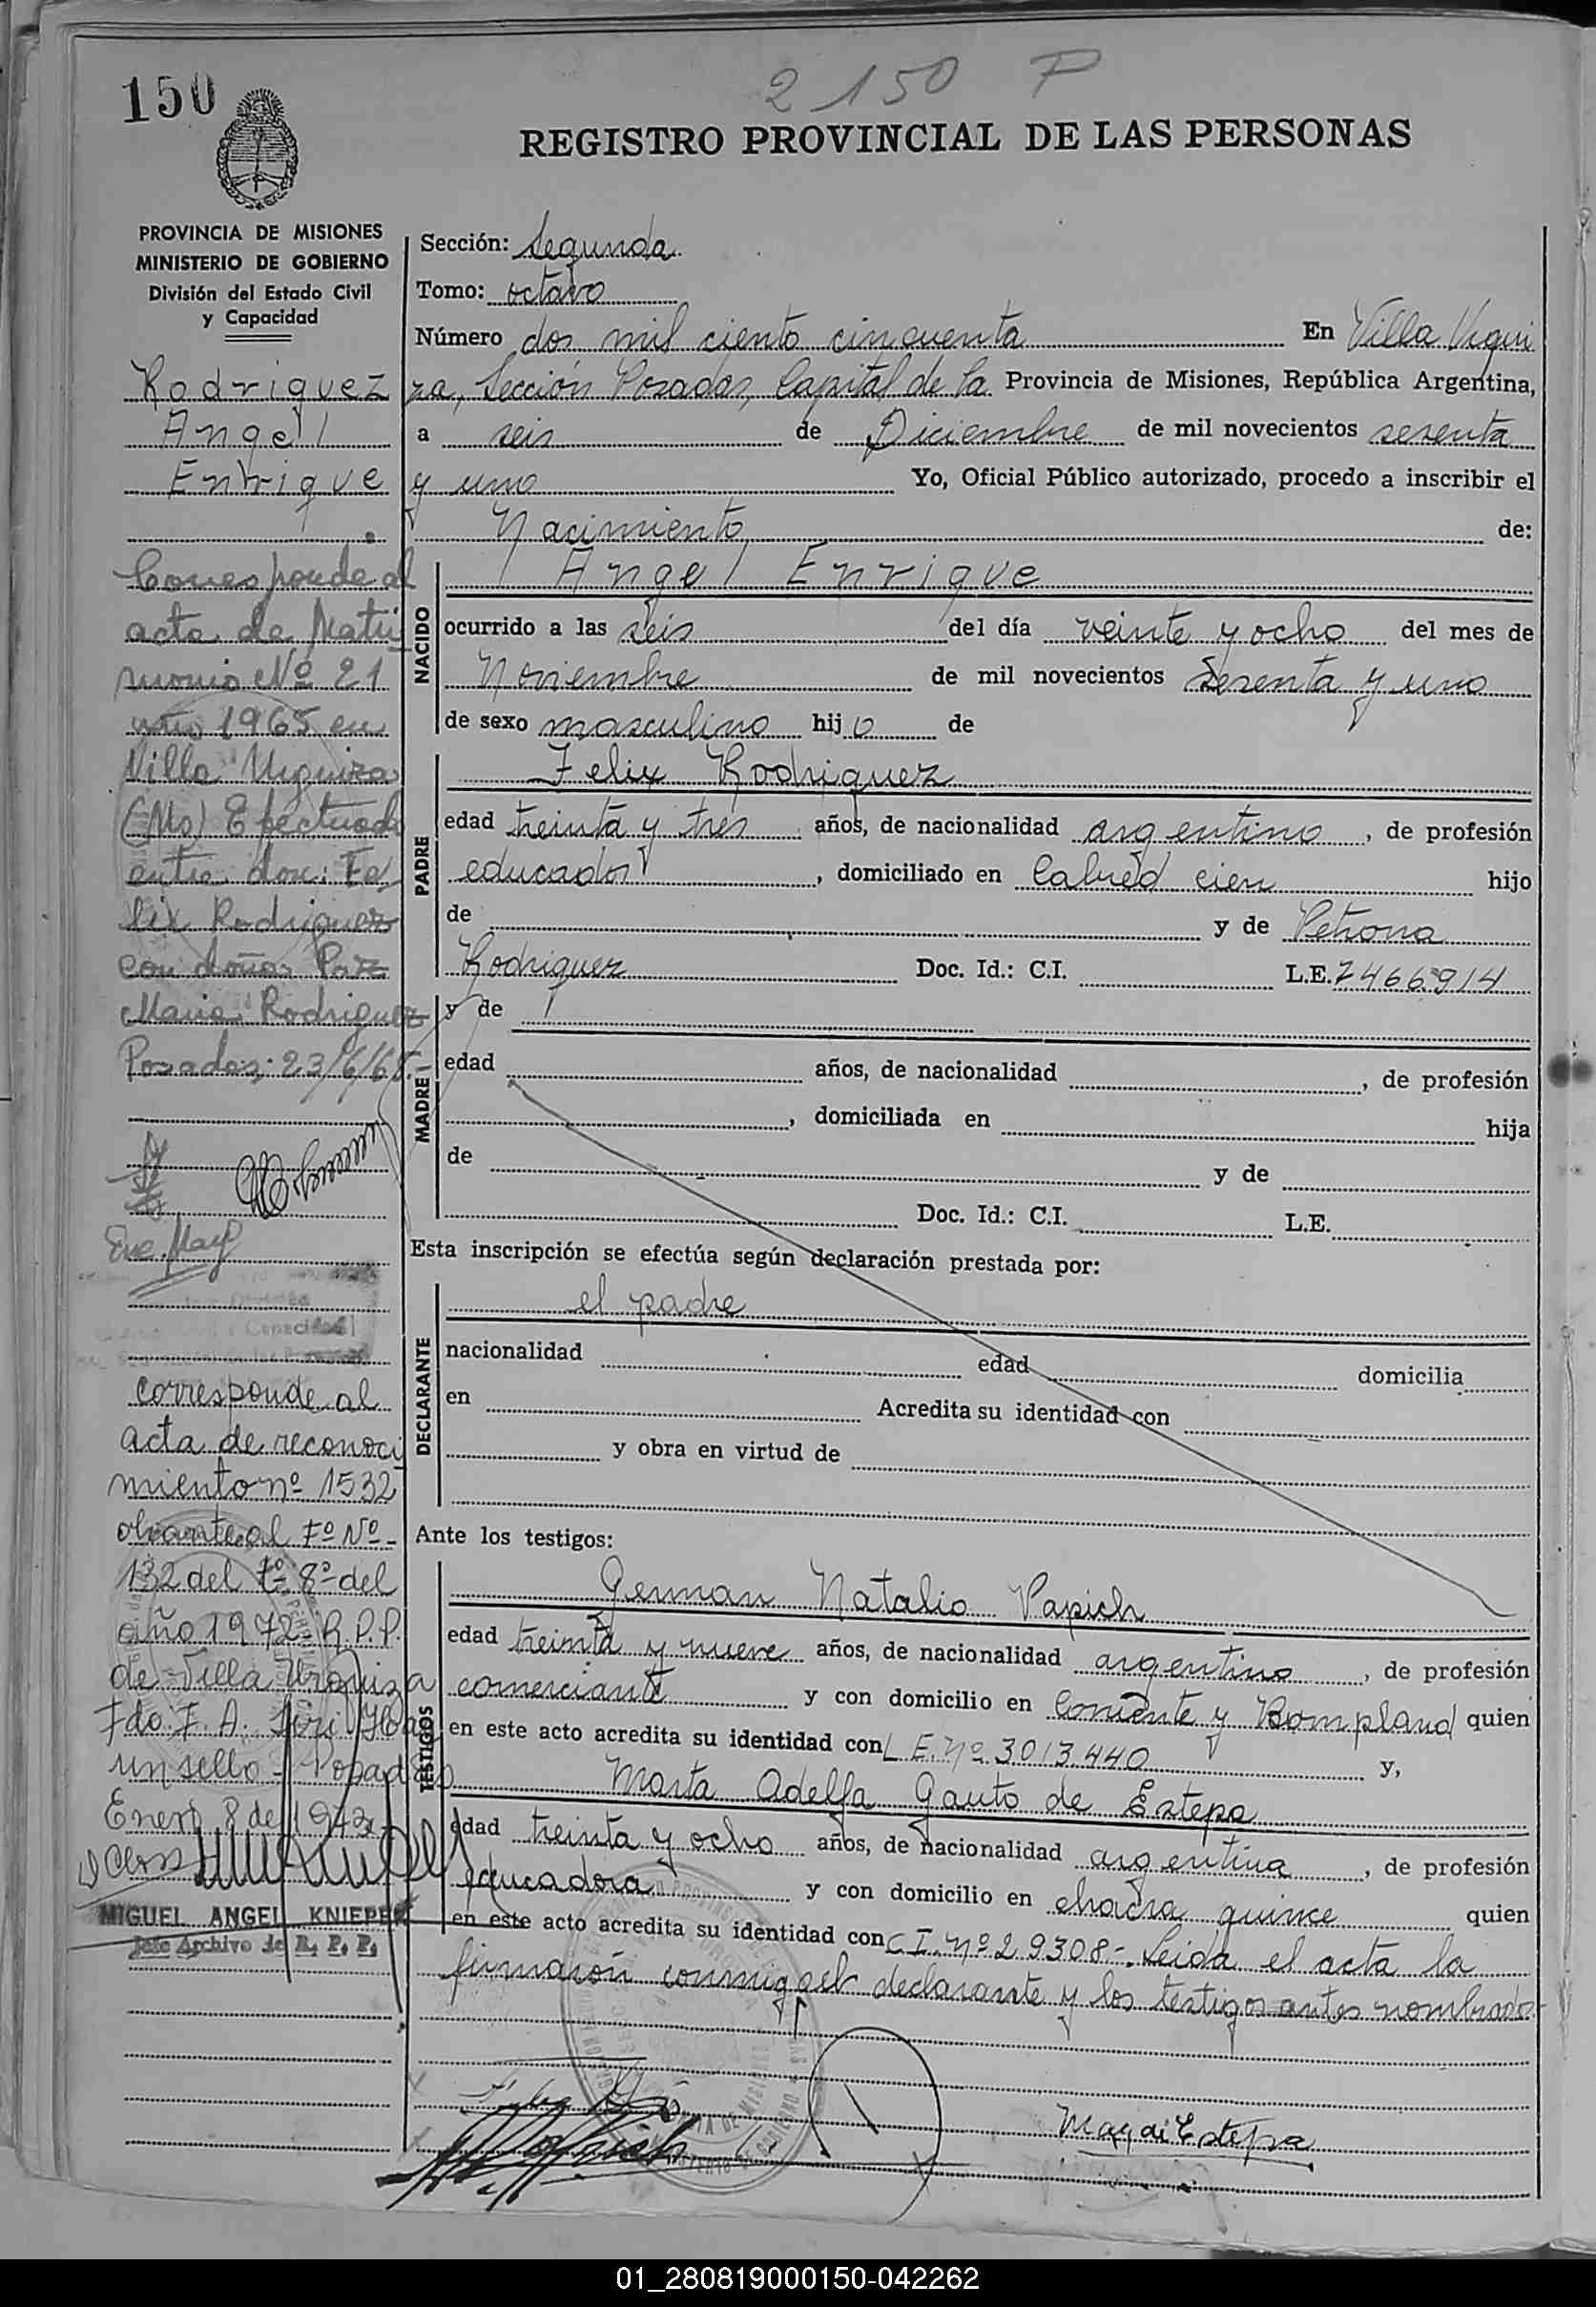 2150 P
150
REGISTRO PROVINCIAL DE LAS PERSONAS
PROVINCIA DE MISIONES
MINISTERIO DE GOBIERNO
División del Estado Civil
y Capacidad
Rodriguez
Angel
Enrique
Corresponde al
acta de Matri
monio Nº 21
año 1965 en
Villa Urquiza
(Ms) Efectuado
entre don: Fe
lix Rodriguez
con doña: Paz
Maria Rodriguez
Posadas; 23/6/65.
corresponde al
acta de reconoci
miento nº 1532
obrante al Fº Nº
132 del tº 8º del
año 1972 - R.P.P.
de Villa Urquiza
Fdo. F. A.
un sello - Posadas
Enero 8 de 1973
MIGUEL ANGEL KNIEPER
Jefe Archivo de R. P. P.
Sección: Segunda
Tomo: octavo
Número dos mil ciento cincuenta En Villa Urqui
za, Sección Posadas, Capital de la Provincia de Misiones, República Argentina,
a seis de Diciembre de mil novecientos sesenta
y uno Yo, Oficial Público autorizado, procedo a inscribir el
Nacimiento de:
NACIDO
Angel Enrique
ocurrido a las seis del día veinte y ocho del mes de
Noviembre de mil novecientos Sesenta y uno
de sexo masculino hijo de
PADRE
Felix Rodriguez
edad treinta y tres años, de nacionalidad argentino, de profesión
educador, domiciliado en Cabred cien hijo
de y de Petrona
Rodriguez Doc. Id.: C.I. L.E. 7466914
MADRE
y de
edad años, de nacionalidad , de profesión
, domiciliada en hija
de y de
Doc. Id.: C.I. L.E.
Esta inscripción se efectúa según declaración prestada por:
DECLARANTE
el padre
nacionalidad edad domicilia
en Acredita su identidad con
y obra en virtud de
Ante los testigos:
TESTIGOS
German Natalio Papich
edad treinta y nueve años, de nacionalidad argentino, de profesión
comerciante y con domicilio en Corriente y Bompland quien
en este acto acredita su identidad con L.E. Nº 3013.440 y,
Marta Adelfa Gauto de Estepa
edad treinta y ocho años, de nacionalidad argentina, de profesión
educadora y con domicilio en chacra quince quien
en este acto acredita su identidad con C.I. Nº 29308-. Leida el acta la
firmaron conmigo el declarante y los testigos antes nombrados
01_280819000150-042262